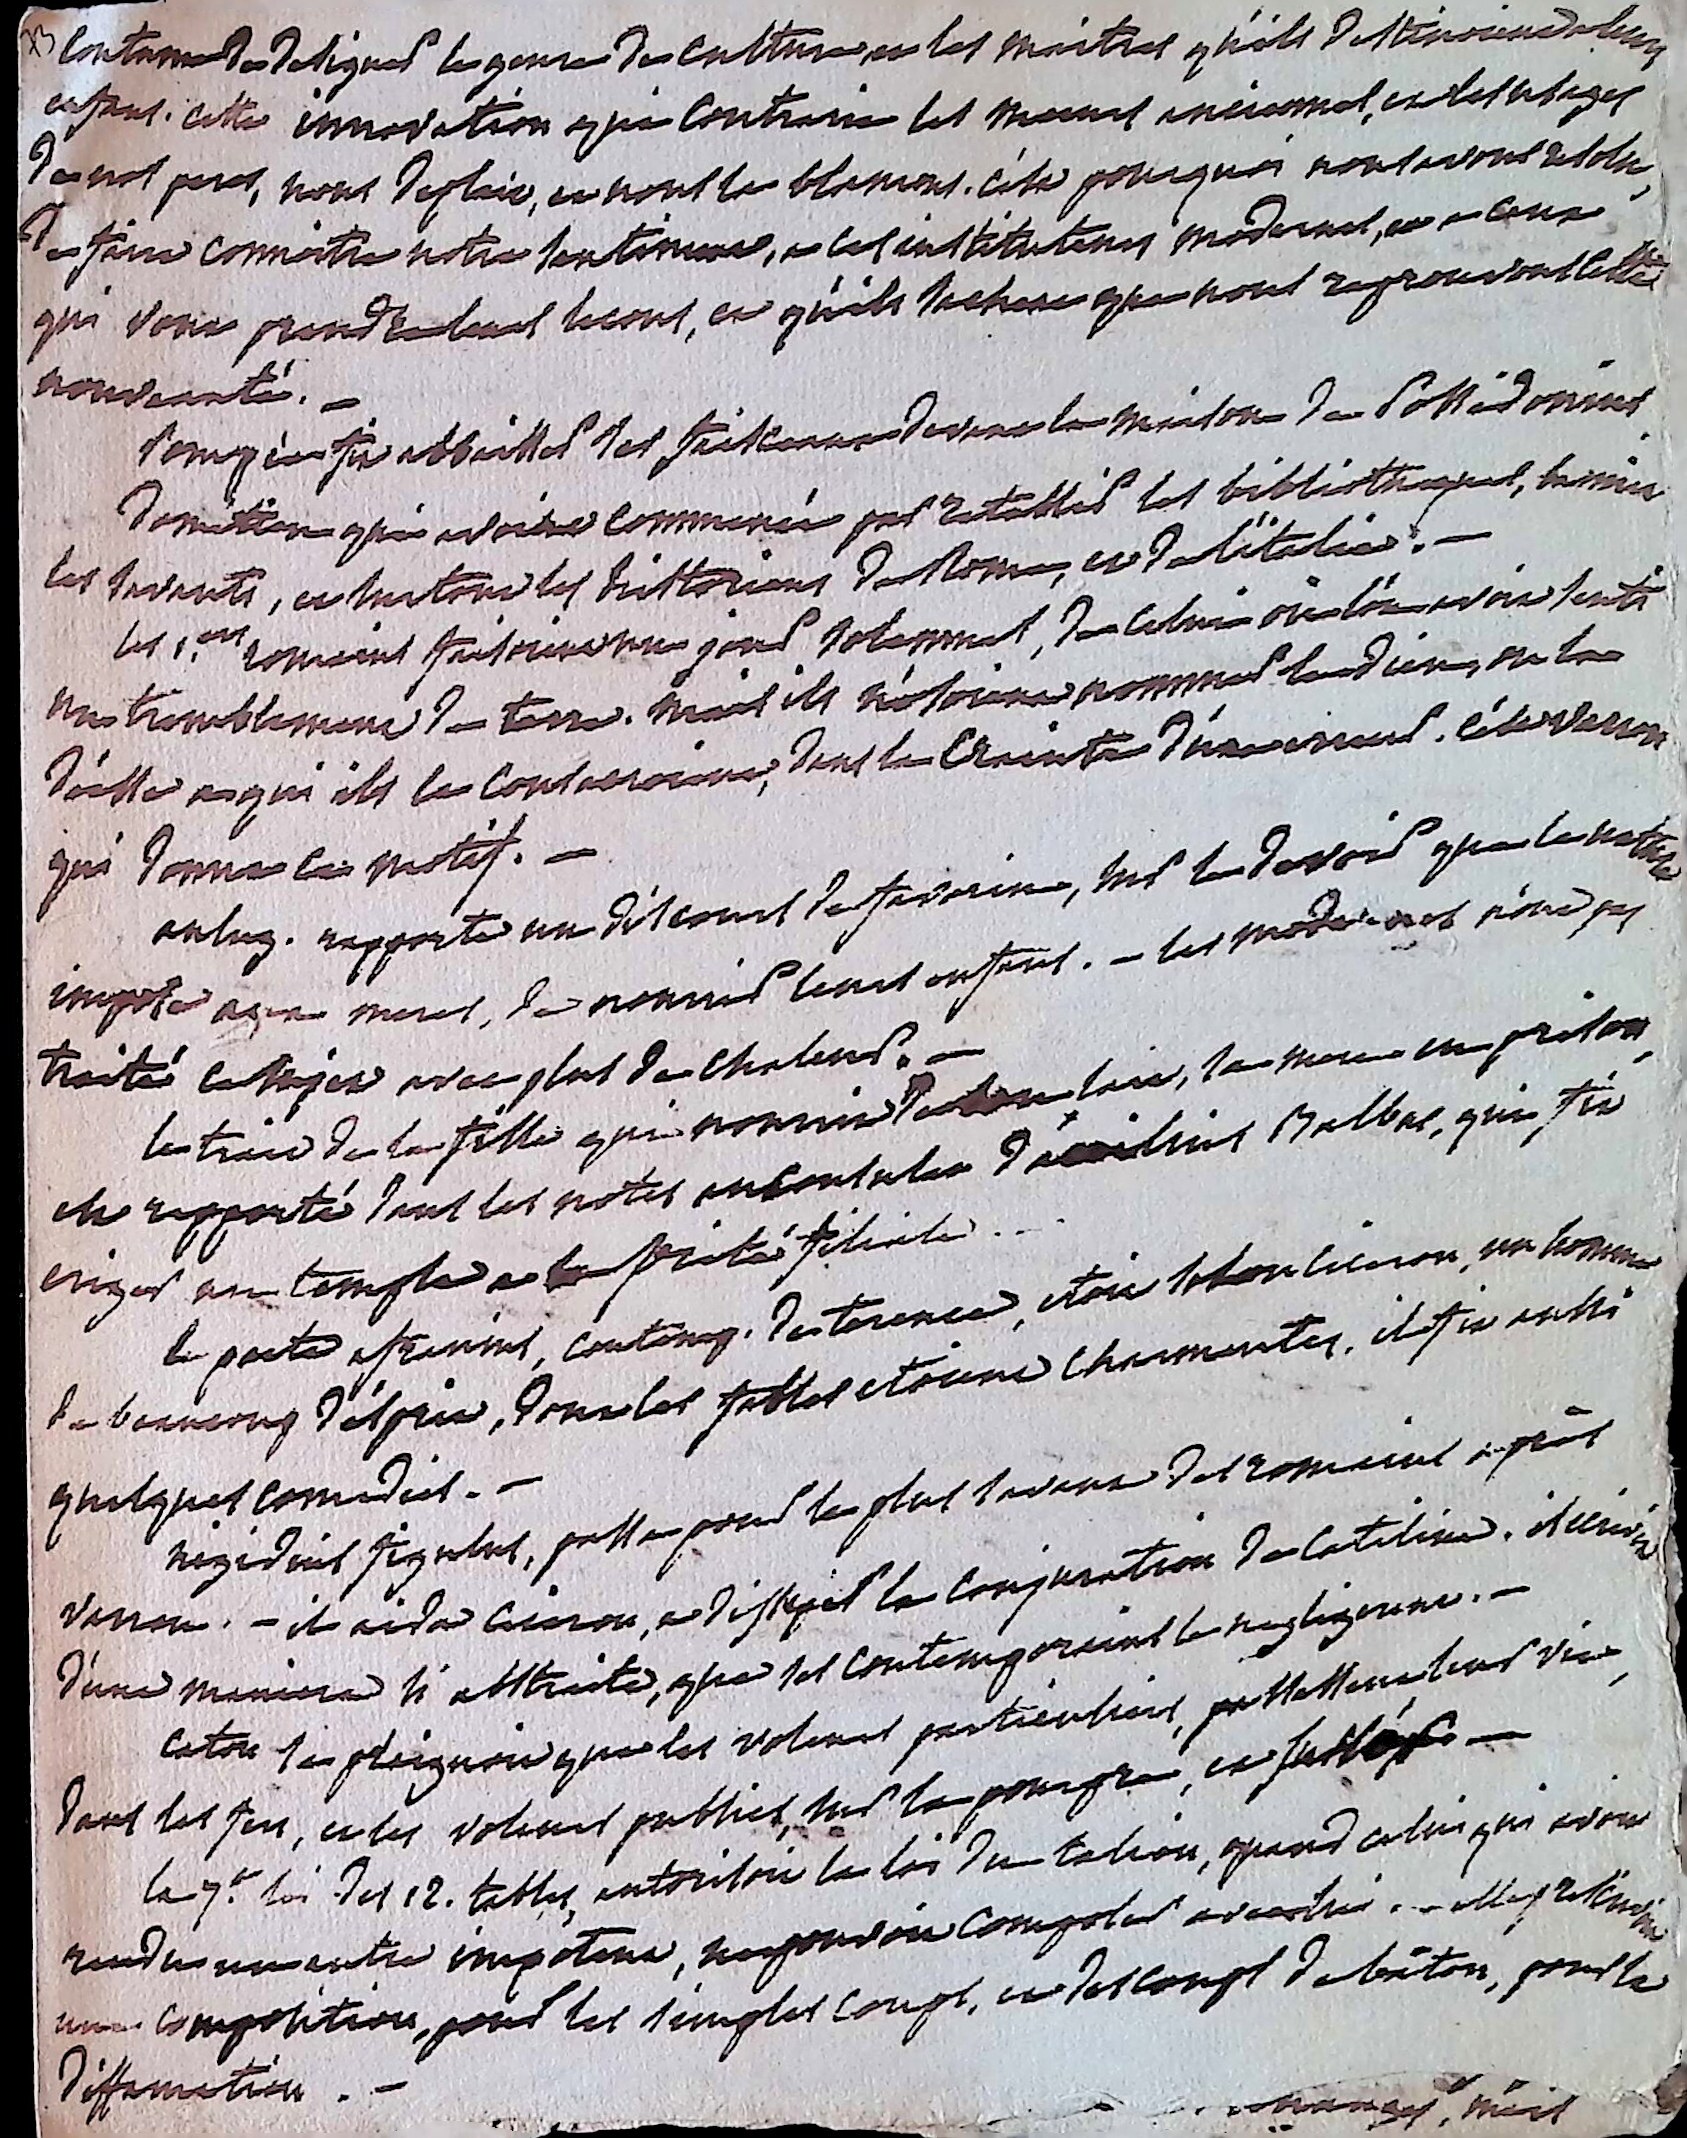 coutume de designer le genre de culture et les maitres qu'ils destinoient a leurs
enfans. cette innovation qui contrarie les mœurs anciennes, et les usages
de nos peres, nous deplait, et nous la blamons. c'est pourquoi nous avons resolu,
de faire connoitre notre sentiment, a ces instituteurs modernes, et a ceux
qui vont prendre leurs lecons, et qu'ils sachent que nous reprouvons cette
nouveauté. —
Pompée fit abbaisser ses faisceaux devant la maison de Possidonius
Domitien qui avoit commencé par retablir les bibliotheques, bannit
les savants, et surtout les historiens de Rome, et de l'italie. —
les 1.ers romains faisoient un jour solemnel, de celui où l'on avoit senti
un tremblement de terre. mais ils n'osoient nommer le dieu, ou la
déesse a qui ils le consacroient, dans la crainte d'une erreur. c'est varron
qui donne ce motif. —
aulug. rapporte un discours de favorin, sur le devoir que la nature
impose aux meres, de nourrir leurs enfans. — les modernes n'ont pas
traité ce sujet avec plus de chaleur. —
le trait de la fille qui nourrit de son lait, sa mere en prison,
est rapporté dans les notes au consulat d'acilius Balbus, qui fit
eriger un temple a la pieté filiale ...
le poete afranius, contemp. de terence, etoit selon ciceron, un homme
de beaucoup d'esprit, dont les fables etoient charmantes, il fit aussi
quelques comedies. —
nigidius figulus, passe pour le plus savant des romains après
varron. — il aida ciceron, a dissiper la conjuration de catilina. il ecrivit
d'une maniere si abstraite, que ses contemporains le negligerent. —
caton se plaignoit que les voleurs particuliers, passassent leur vie,
dans les fers, et les voleurs publics, sur la pourpre, et —
la 7.e loi des 12. tables, autorisoit la loi du talion, quand celui qui avoit
rendu un autre impotent, ne pouvoit composer avec lui. — elle prescrivoit
une composition, pour les simples coups, et des coups de bâton, pour la
diffamation. —
mais